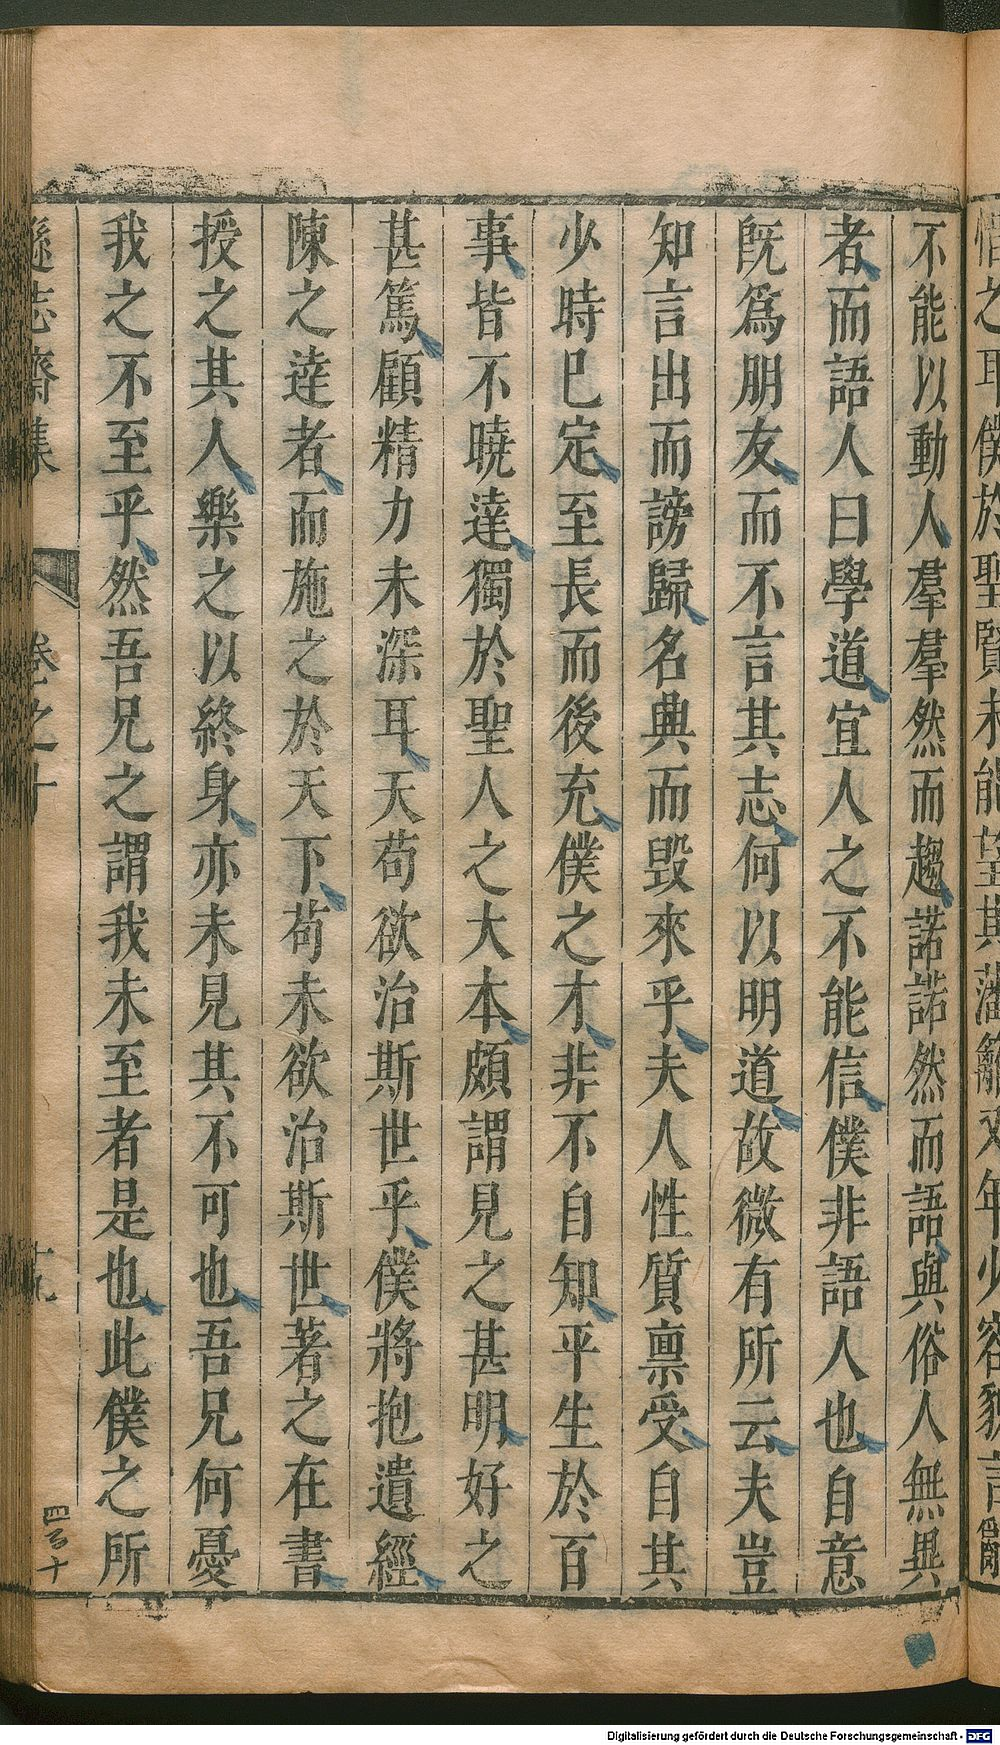 不能以動人羣羣然而趨諾諾然而語與俗人無異
者而語人曰學道宜人之不能信僕非語人也自意
旣爲朋友而不言其志何以明道故微有所云夫豈
知言出而謗歸名典而毀來乎夫人性質禀受自其
少時已定至長而後充僕之才非不自知平生於百
事皆不曉達獨於聖人之大本頗謂見之甚明好之
甚篤顧精力未深耳天苟欲治斯世乎僕將抱遺經
陳之達者而施之於天下苟未欲治斯世著之在書
授之其人樂之以終身亦未見其不可也吾兄何憂
我之不至乎然吾兄之謂我未至者是也此僕之所
遜志齋集 卷之十 十九
四百十
Digitalisierung gefördert durch die Deutsche Forschungsgemeinschaft - DFG